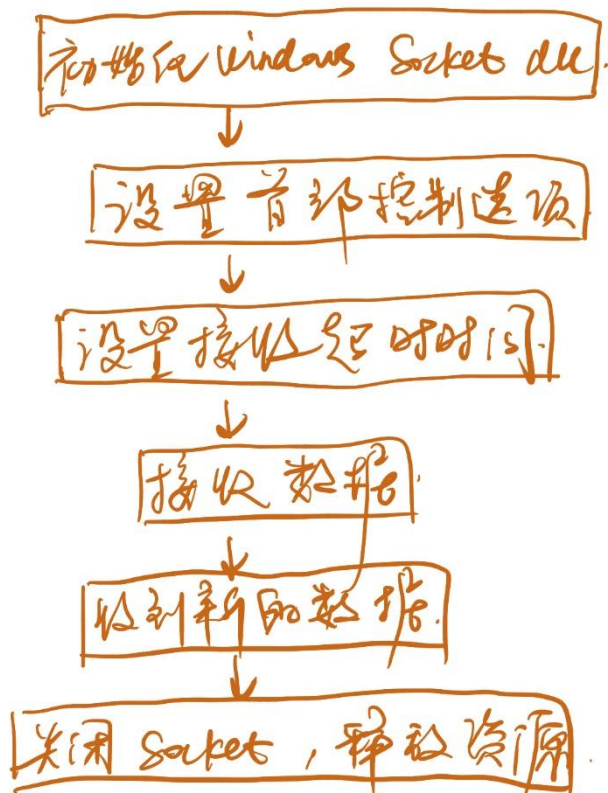 初始化 Windows Socket dll.
设置首部控制选项
设置接收超时时间.
接收数据.
收到新的数据.
关闭 Socket，释放资源